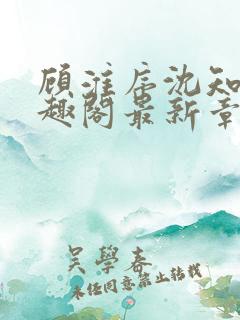 顾淮辰沈知
趣阁最新章
吴學春
未任同意禁止转载